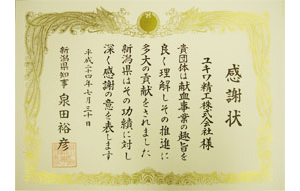 感謝状
ユキワ精工株式会社様
貴団体は献血事業の趣旨を
良く理解しその推進に
多大の貢献をされました
新潟県はその功績に対し
深く感謝の意を表します
平成二十四年七月三十日
新潟県知事 泉田裕彦